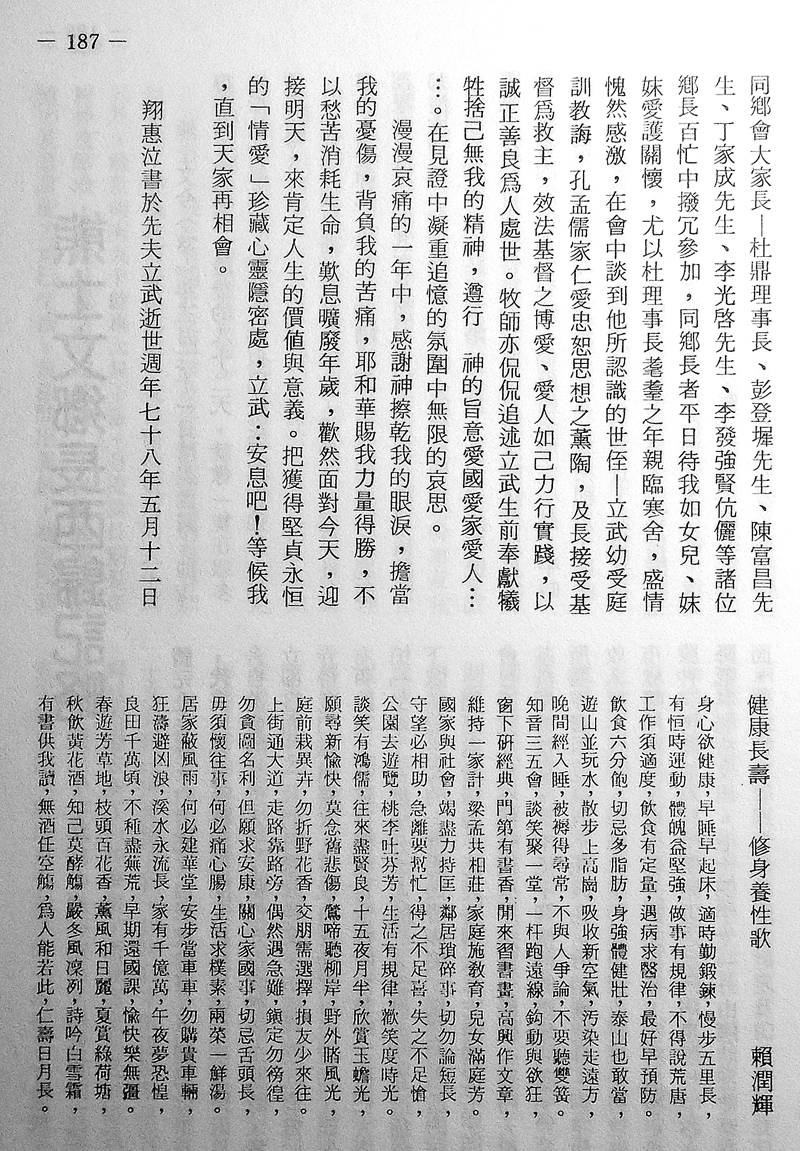 — 187 —
同鄉會大家長—杜鼎理事長、彭登墀先生、陳富昌先
生、丁家成先生、李光啓先生、李發強賢伉儷等諸位
鄉長百忙中撥冗參加，同鄉長者平日待我如女兒、妹
妹愛護關懷，尤以杜理事長耄耋之年親臨寒舍，盛情
愧然感激，在會中談到他所認識的世侄—立武幼受庭
訓教誨，孔孟儒家仁愛忠恕思想之薰陶，及長接受基
督爲救主，效法基督之博愛、愛人如己力行實踐，以
誠正善良爲人處世。牧師亦侃侃追述立武生前奉獻犧
牲捨己無我的精神，遵行　神的旨意愛國愛家愛人…
…。在見證中凝重追憶的氛圍中無限的哀思。
漫漫哀痛的一年中，感謝神擦乾我的眼淚，擔當
我的憂傷，背負我的苦痛，耶和華賜我力量得勝，不
以愁苦消耗生命，歎息曠廢年歲，歡然面對今天，迎
接明天，來肯定人生的價值與意義。把獲得堅貞永恒
的「情愛」珍藏心靈隱密處，立武：安息吧！等候我
，直到天家再相會。
翔惠泣書於先夫立武逝世週年七十八年五月十二日
健康長壽——修身養性歌　賴潤輝
身心欲健康，早睡早起床，適時勤鍛鍊，慢步五里長，
有恒時運動，體魄益堅強，做事有規律，不得說荒唐，
工作須適度，飲食有定量，遇病求醫治，最好早預防。
飲食六分飽，切忌多脂肪，身強體健壯，泰山也敢當，
遊山並玩水，散步上高崗，吸收新空氣，汚染走遠方，
晚間經入睡，被褥得尋常，不與人爭論，不要聽雙簧。
知音三五會，談笑聚一堂，一杆跑遠線，鈎動與欲狂，
窗下研經典，門第有書香，閒來習書畫，高興作文章，
維持一家計，梁孟共相莊，家庭施敎育，兒女滿庭芳。
國家與社會，竭盡力持匡，鄰居瑣碎事，切勿論短長，
守望必相助，急離要幫忙，得之不足喜，失之不足愴，
公園去遊覽，桃李吐芬芳，生活有規律，歡笑度時光，
談笑有鴻儒，往來盡賢良，十五夜月半，欣賞玉蟾光，
願尋新愉快，莫念舊悲傷，鶯啼聽柳岸，野外賭風光，
庭前栽異卉，勿折野花香，交朋需選擇，損友少來往。
上街通大道，走路靠路旁，偶然遇急難，鎭定勿徬徨，
勿貪圖名利，但願求安康，關心家國事，切忌舌頭長，
毋須懷往事，何必痛心腸，生活求樸素，兩菜一鮮湯。
居家蔽風雨，何必建華堂，安步當車車，勿購貴車輛，
狂濤避凶浪，溪水永流長，家有千億萬，午夜夢恐惶，
良田千萬頃，不種盡蕪荒，早期還國課，愉快樂無疆。
春遊芳草地，枝頭百花香，薰風和日麗，夏賞綠荷塘，
秋飲黃花酒，知己莫酵觴，嚴冬風凜冽，詩吟白雪霜，
有書供我讀，無酒任空觴，爲人能若此，仁壽日月長。